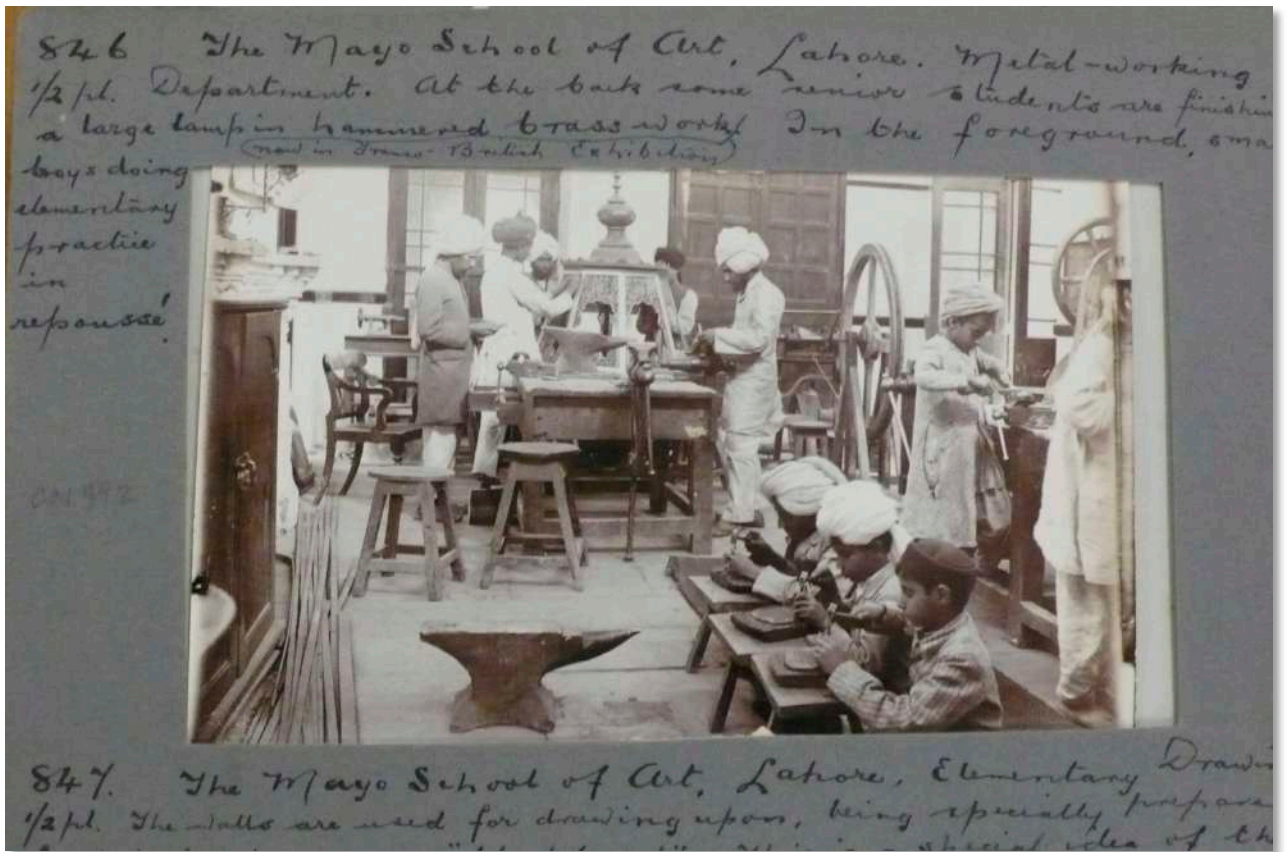 846 The Mayo School of Art, Lahore. Metal-working
1/2 pl. Department. At the back some senior students are finishin
a large lamp in hammered brass work/ In the foreground, sma
(now in Franco-British Exhibition)
boys doing
elementary
practice
in
repoussé!
CN.992
847. The Mayo School of Art, Lahore, Elementary Drawin
1/2 pl. The walls are used for drawing upon, being specially prepare
This is a special idea of th